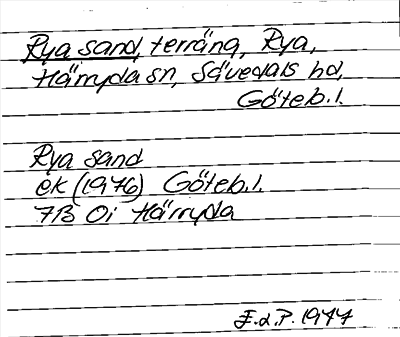 Rya sand, terräng, Rya,
Härryda sn, Sävedals hd,
Göteb. l.
Rya sand
ek (1976) Göteb. l.
7B 0i Härryda
E.d.P. 1977